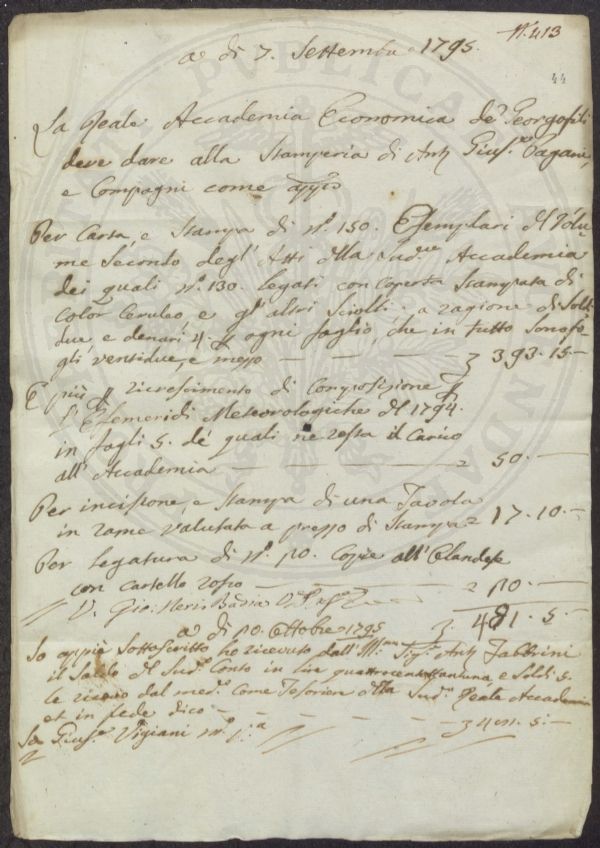 N. 413
a dì 7. Settembre 1795.
44
La Reale Accademia Economica de' Georgofili
deve dare alla Stamperia di Ant. Gius.e Pagani,
e Compagni come app.o
Per Carta, e Stampa di N.o 150. Esemplari del Volu
me Secondo degl' Atti della sud.a Accademia
dei quali N.o 130. legati con coperta Stampata di
Color Ceruleo e gl' altri Sciolti, a ragione di Soldi
due, e denari 4. ogni foglio, che in tutto sono fo-
gli ventidue, e mezzo — — — 393. 15. —
E più ricrescimento di Composizione
l' Efemeridi Meteorologiche del 1794.
in fogli 5. de' quali ne resta il Carico
all' Accademia — — — 50. —
Per incisione, e Stampa di una Tavola
in rame valutata a prezzo di Stampa 17. 10. —
Per legatura di N.o 20. Copie all' Olandese
con cartello rosso — — 20. —
V. Gio: Neri Badia
481. 5. —
a dì 20. Ottobre 1795
Io appiè Sottoscritto ho ricevuto dall' Ill.mo Sig.e Ant. Fabbrini
il Saldo del Sud.o Conto in Lire quattrocentottantuna, e Soldi 5.
le ricevo dal med.o Come Tesoriere della Sud.a Reale Accademia
et in fede dico — — — 481. 5. —
Io Gius.e Vigiani m.o p.a